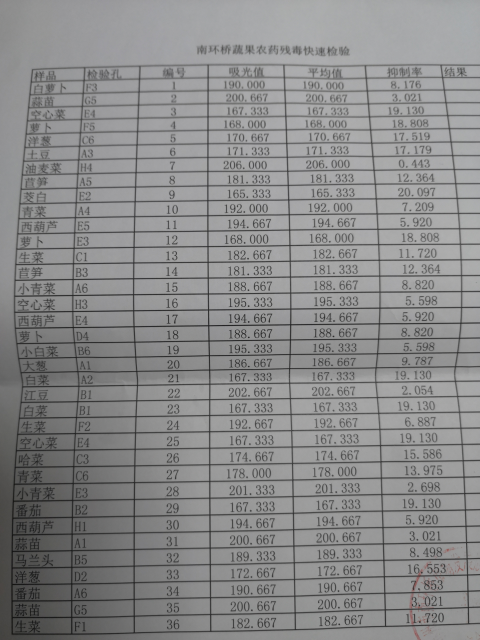 南环桥蔬果农药残毒快速检验
样品 检验孔 编号 吸光值 平均值 抑制率 结果
白萝卜 F3 1 190.000 190.000 8.176
蒜苗 G5 2 200.667 200.667 3.021
空心菜 E4 3 167.333 167.333 19.130
萝卜 F5 4 168.000 168.000 18.808
洋葱 C6 5 170.667 170.667 17.519
土豆 A3 6 171.333 171.333 17.179
油麦菜 H4 7 206.000 206.000 0.443
莒笋 A5 8 181.333 181.333 12.364
茭白 E2 9 165.333 165.333 20.097
青菜 A4 10 192.000 192.000 7.209
西葫芦 E5 11 194.667 194.667 5.920
萝卜 E3 12 168.000 168.000 18.808
生菜 C1 13 182.667 182.667 11.720
莒笋 B3 14 181.333 181.333 12.364
小青菜 A6 15 188.667 188.667 8.820
空心菜 H3 16 195.333 195.333 5.598
西葫芦 E4 17 194.667 194.667 5.920
萝卜 D4 18 188.667 188.667 8.820
小白菜 B6 19 195.333 195.333 5.598
大葱 A1 20 186.667 186.667 9.787
白菜 A2 21 167.333 167.333 19.130
江豆 B1 22 202.667 202.667 2.054
白菜 B1 23 167.333 167.333 19.130
生菜 F2 24 192.667 192.667 6.887
空心菜 E4 25 167.333 167.333 19.130
哈菜 C3 26 174.667 174.667 15.586
青菜 C6 27 178.000 178.000 13.975
小青菜 E3 28 201.333 201.333 2.698
番茄 B2 29 167.333 167.333 19.130
西葫芦 H1 30 194.667 194.667 5.920
蒜苗 A1 31 200.667 200.667 3.021
马兰头 B5 32 189.333 189.333 8.498
洋葱 D2 33 172.667 172.667 16.553
番茄 A6 34 190.667 190.667 7.853
蒜苗 G5 35 200.667 200.667 3.021
生菜 F1 36 182.667 182.667 11.720